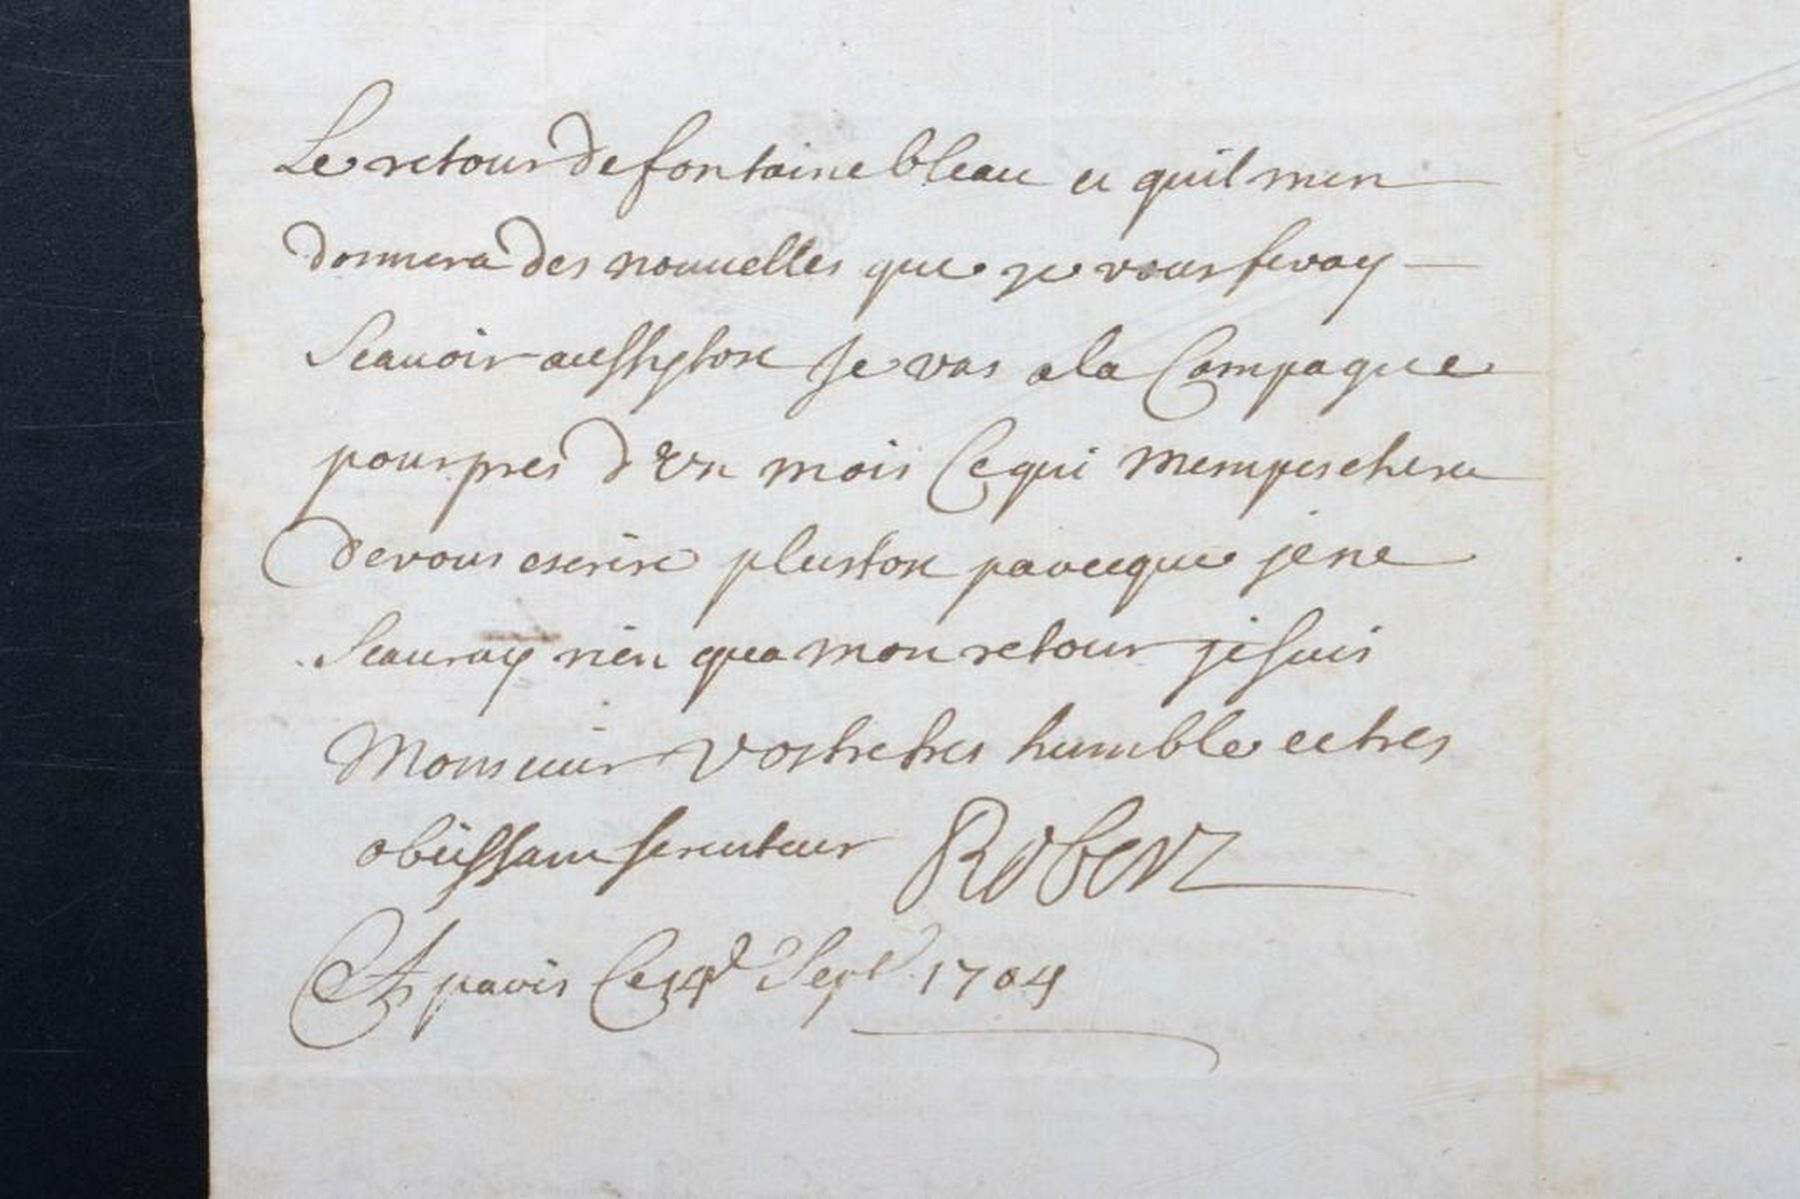 Le retour de fontainebleau et quil men
donnera des nouvelles que je vous feray
Scavoir aussytost Je vas a la Campagne
pour pres d'Un mois Ce qui mempeschera
de vous escrire plustost parceque je ne
Scauray rien qua mon retour je suis
Monsieur Vostre tres humble et tres
obeissant serviteur Robert
A paris Ce 14e Sept. 1704